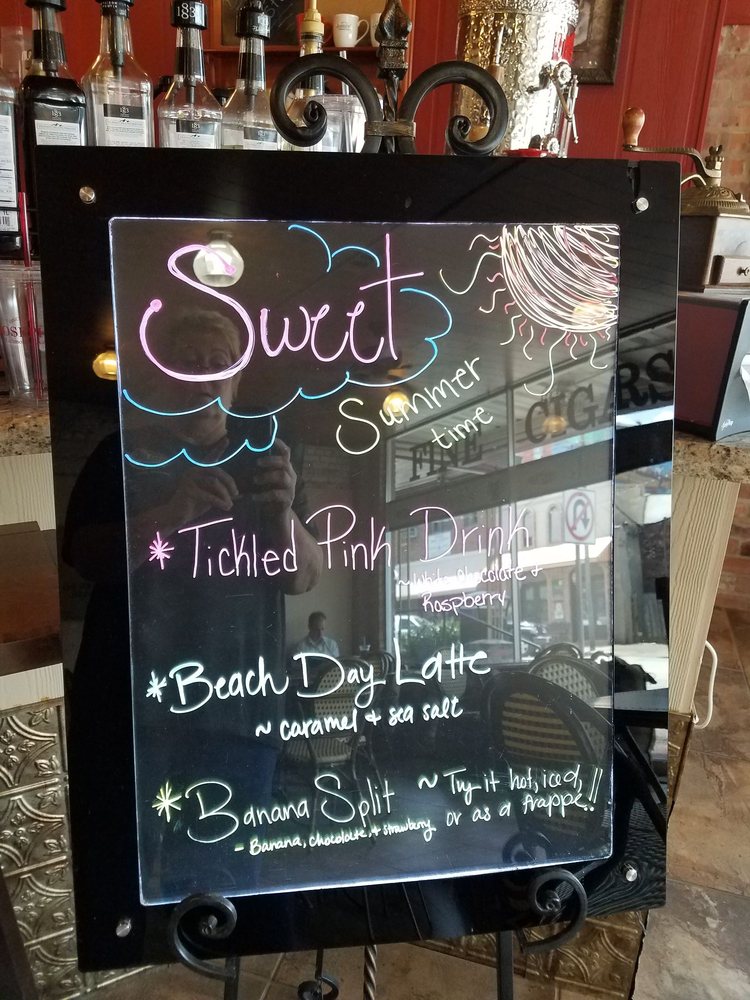 1883
1883
1883
1883
Sweet
Summer
time
FINE CIGARS
* Tickled Pink Drink
~ White chocolate +
Raspberry
* Beach Day Latte
~ caramel + sea salt
* Banana Split ~ Try it hot, iced,
or as a frappe!!
- Banana, chocolate, + strawberry